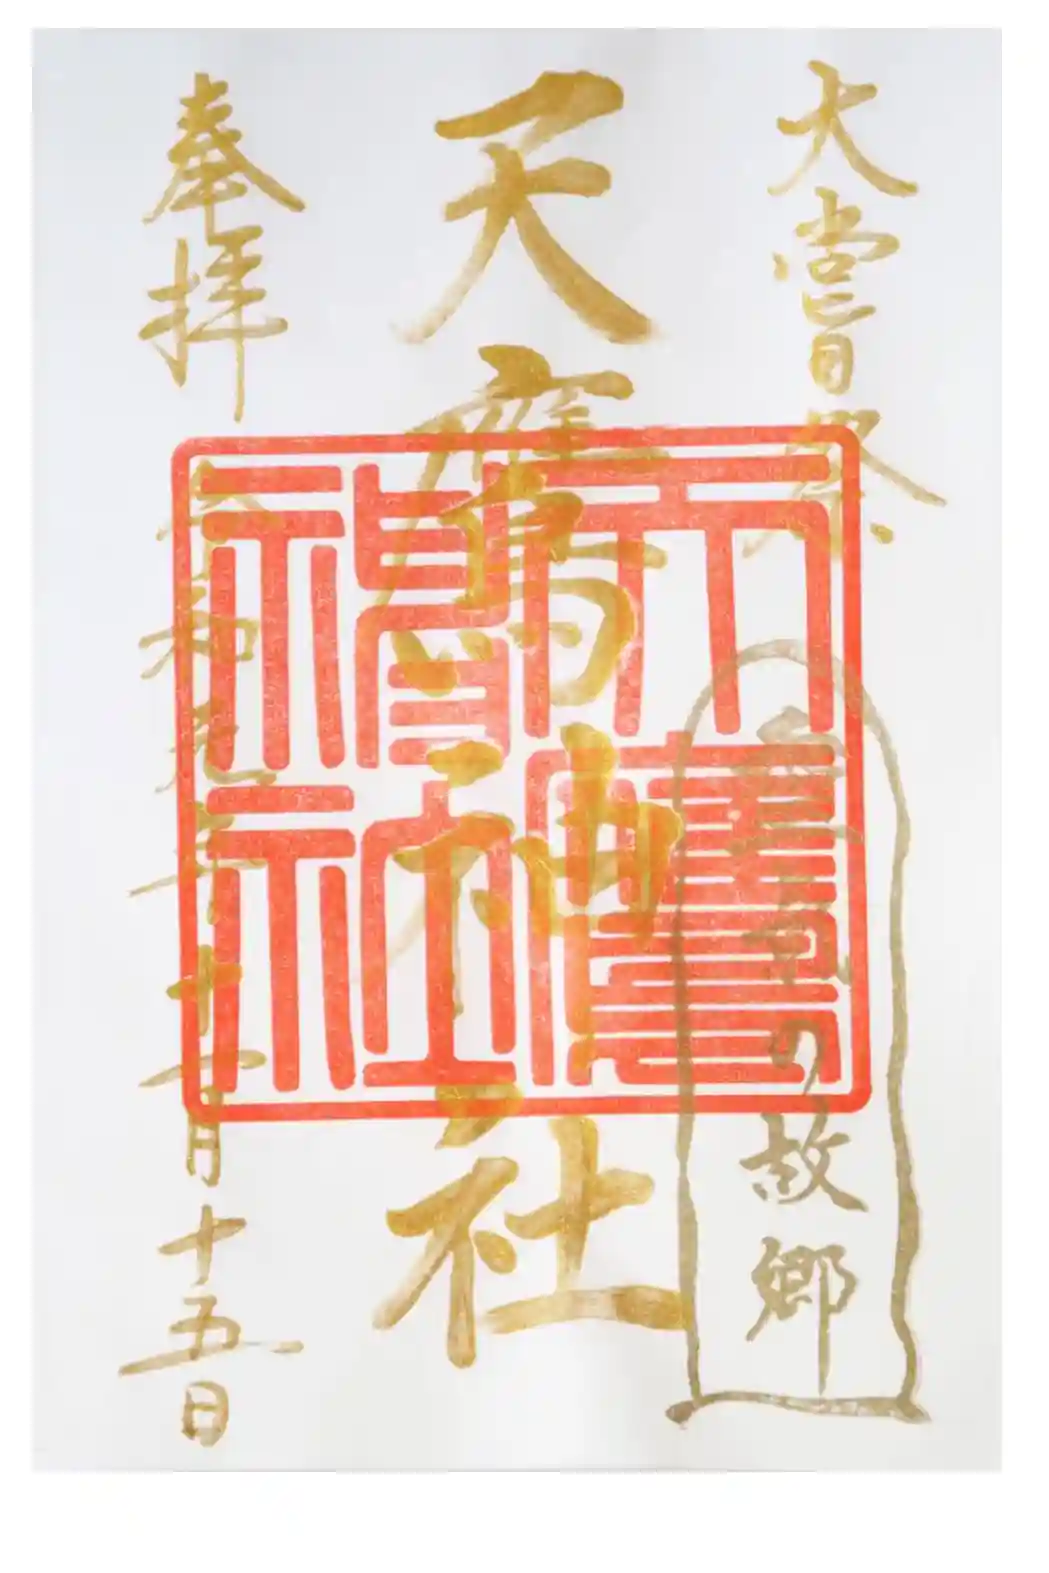 大嘗祭
の故郷
天鷹神社
天鷹神社
奉拝
令和元年十一月十五日